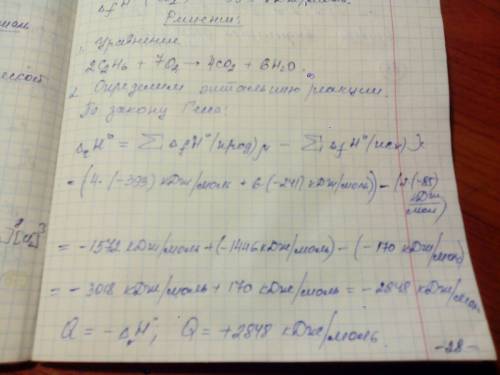 Решение:
1. Уравнение
2C₂H₆ + 7O₂ → 4CO₂ + 6H₂O.
2. Определяем энтальпию реакции.
По закону Гесса:
ΔᵣH° = ∑ ΔfH°(прод) - ∑ ΔfH°(исх) =
= (4·(-393) кДж/моль + 6·(-241) кДж/моль) - (2·(-85) кДж/моль)
= -1572 кДж/моль + (-1446 кДж/моль) - (-170 кДж/моль)
= -3018 кДж/моль + 170 кДж/моль = -2848 кДж/моль
Q = -ΔᵣH°; Q = +2848 кДж/моль.
-28-